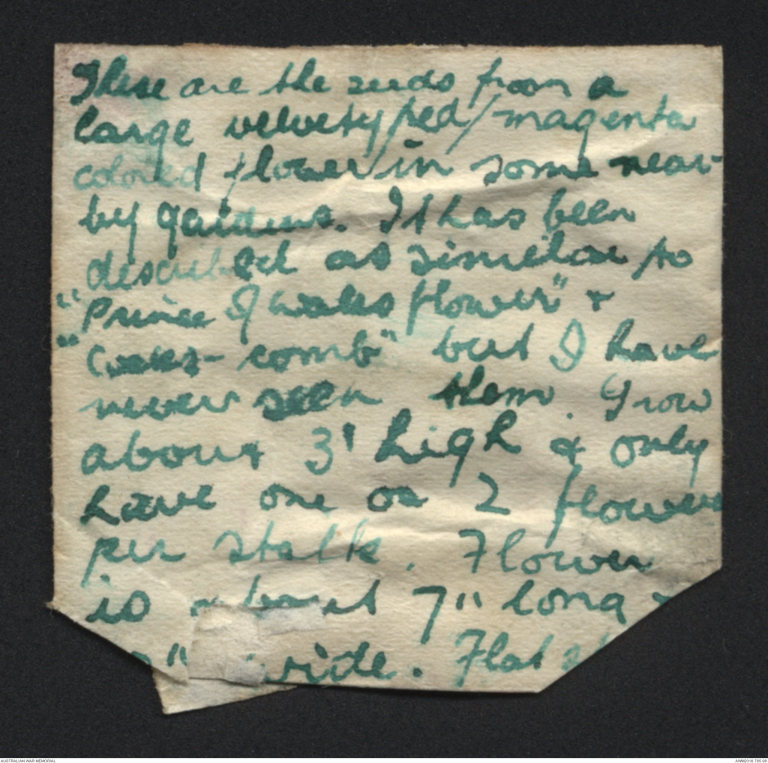 These are the seeds from a
large velvety/red/magenta
colored flower in some near-
by gardens. It has been
described as similar to
"Prince of Wales flower" &
"Coxes-comb" but I have
never seen them. Grow
about 3' high & only
have one or 2 flowers
per stalk. Flower
is about 7" long &
" wide. Flat
AUSTRALIAN WAR MEMORIAL